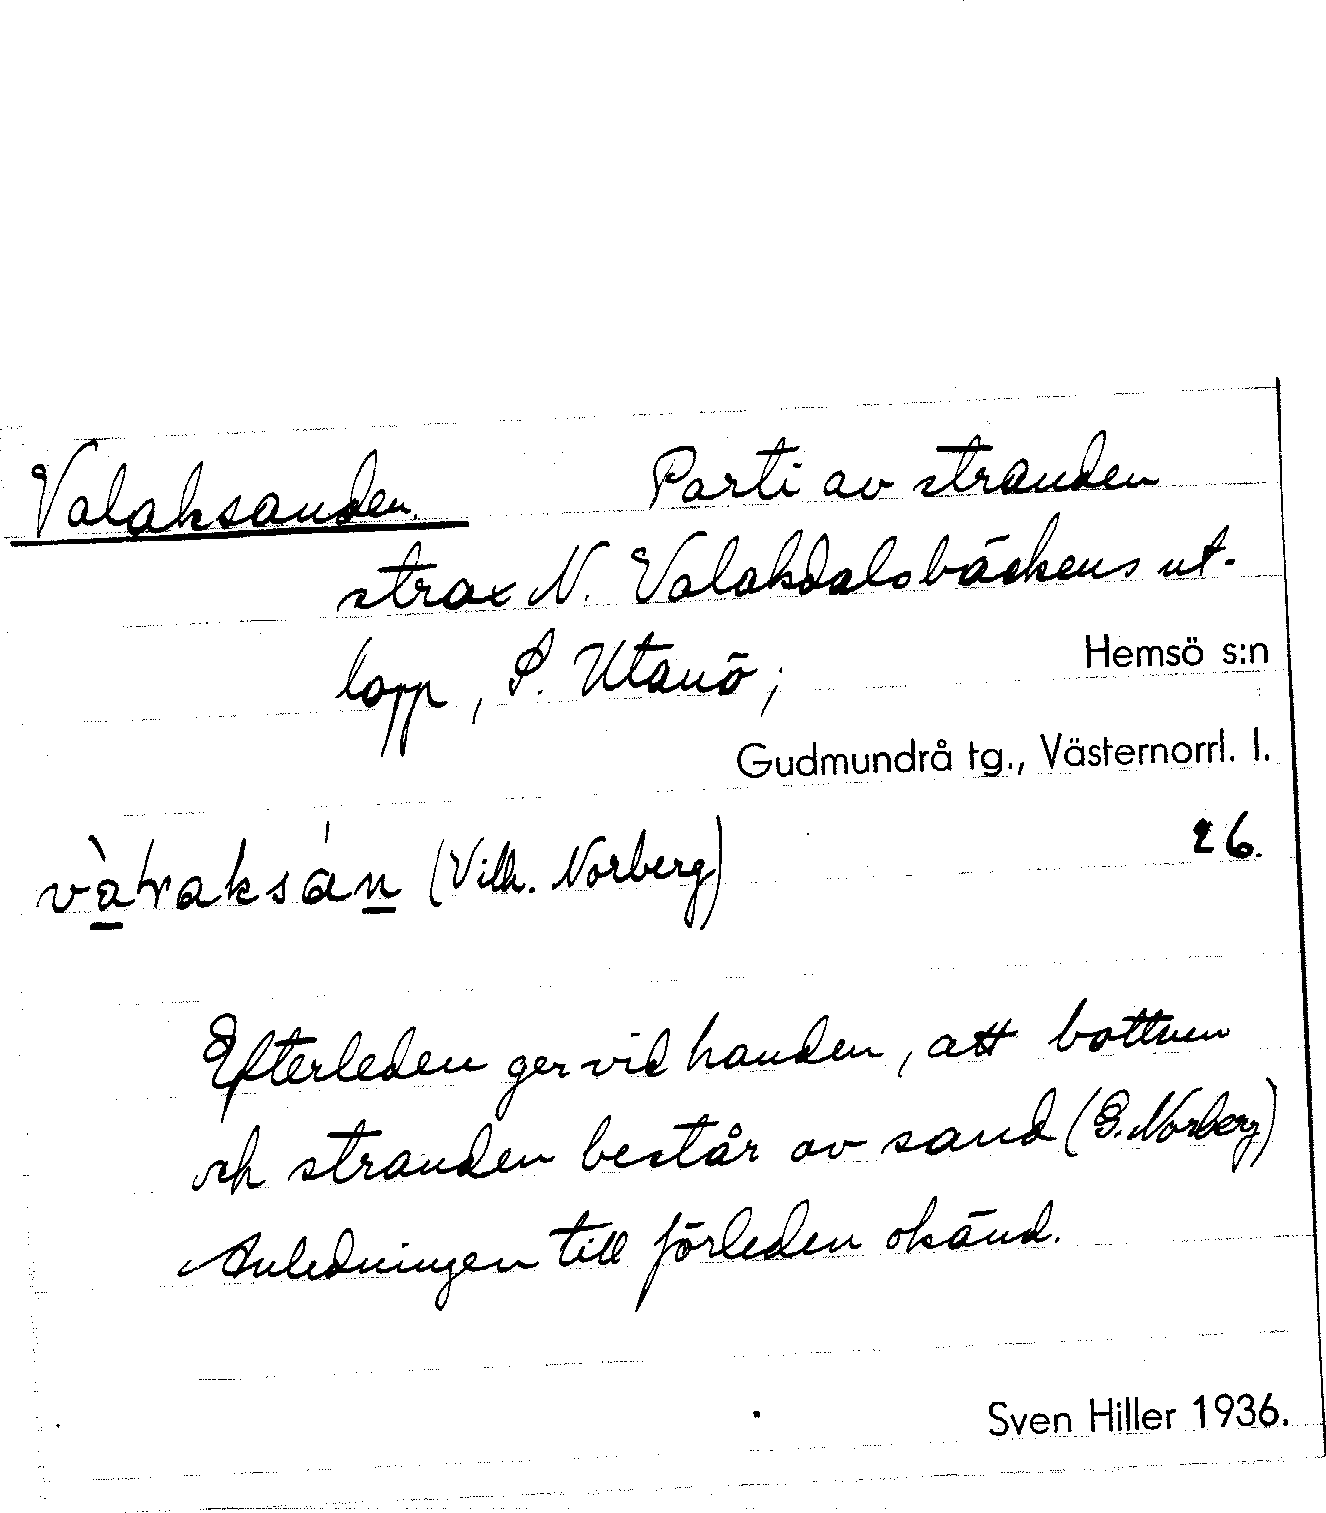 Valaksanden. Parti av stranden
strax N. Valakdalsbäckens ut-
lopp, S. Utanö; Hemsö s:n
Gudmundrå tg., Västernorrl. l.
(Vilh. Norberg) 26.
Efterleden ger vid handen, att bottnen
och stranden består av sand (E. Norberg)
Anledningen till förleden okänd.
Sven Hiller 1936.